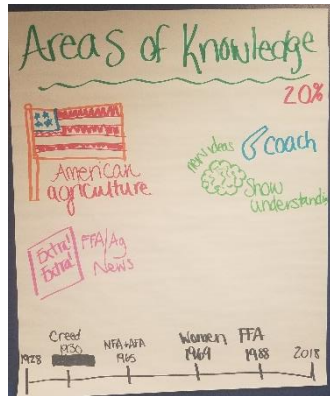 Areas of Knowledge
20%
American
agriculture
new ideas
coach
Show
understanding
Extra!
Extra!
FFA/Ag
News
1928
Creed
1930
NFA+AFA
1965
Women
1969
FFA
1988
2018